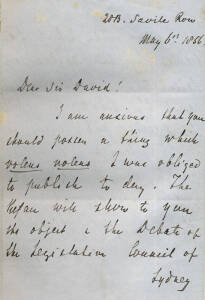 20B. Savile Row
May 6th. 1856
Dear Sir David!
I am anxious that you
should possess a thing which
volens nolens I was obliged
to publish to day. The
will shew to you
its object & the Debate of
the Legislative Council of
Sydney